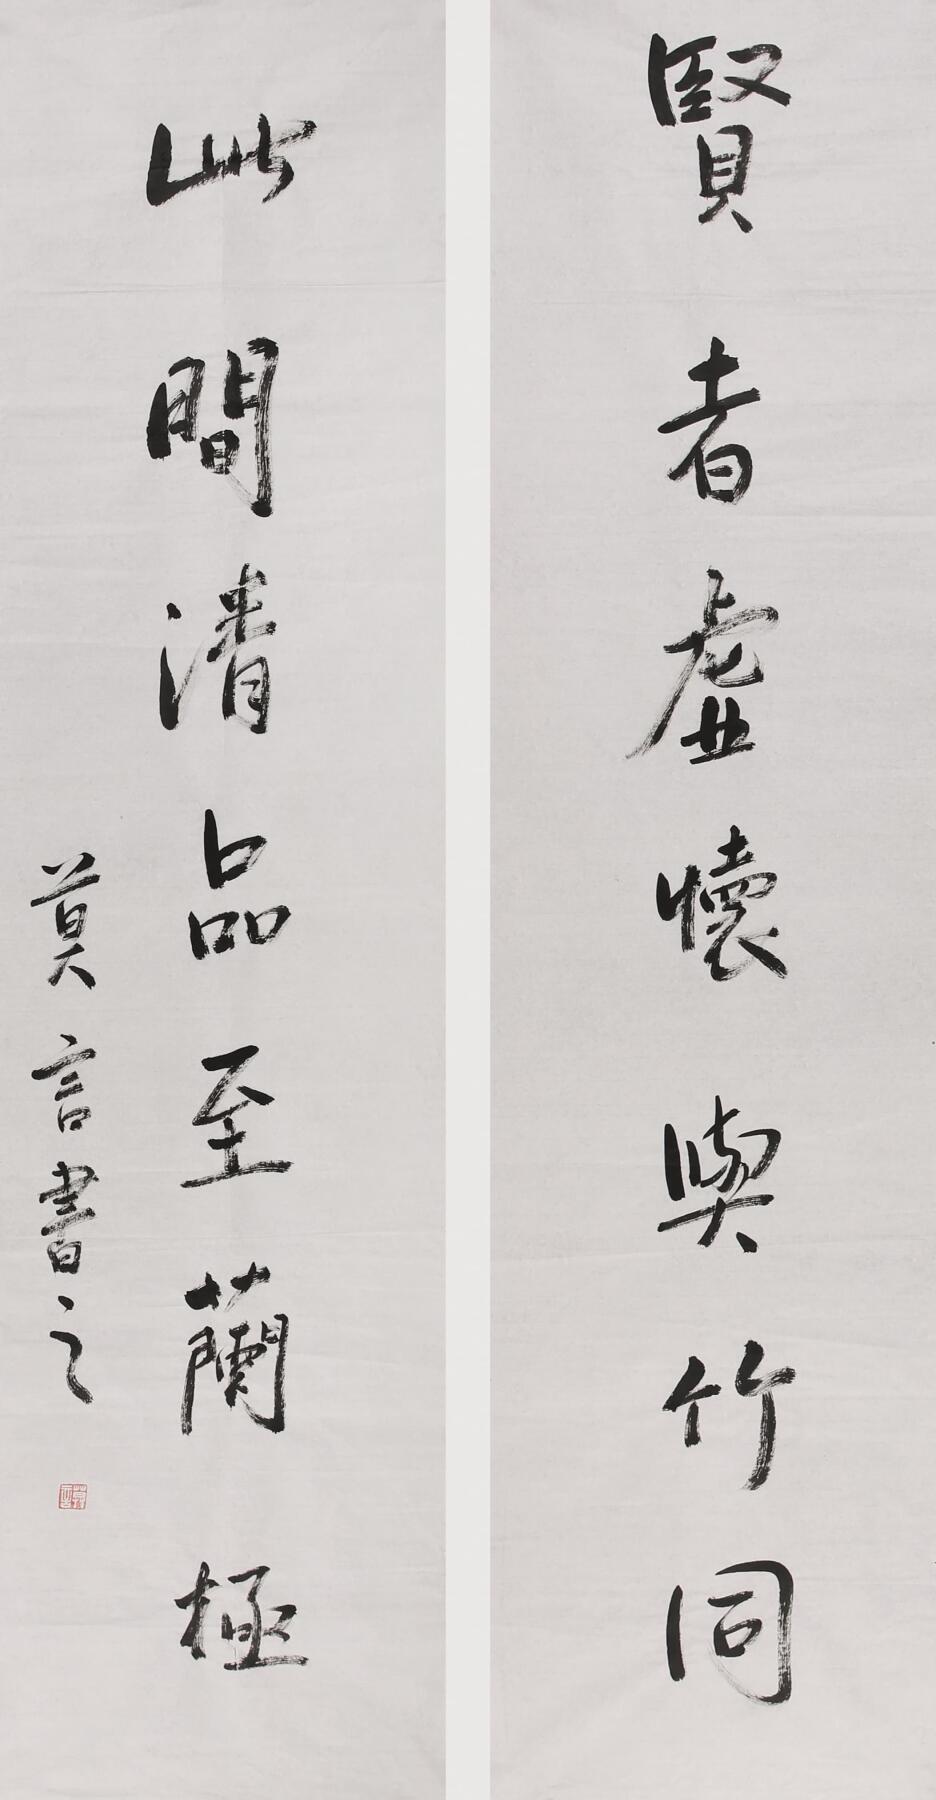 賢者虛懷與竹同
此間清品至蘭極
莫言書之
莫言